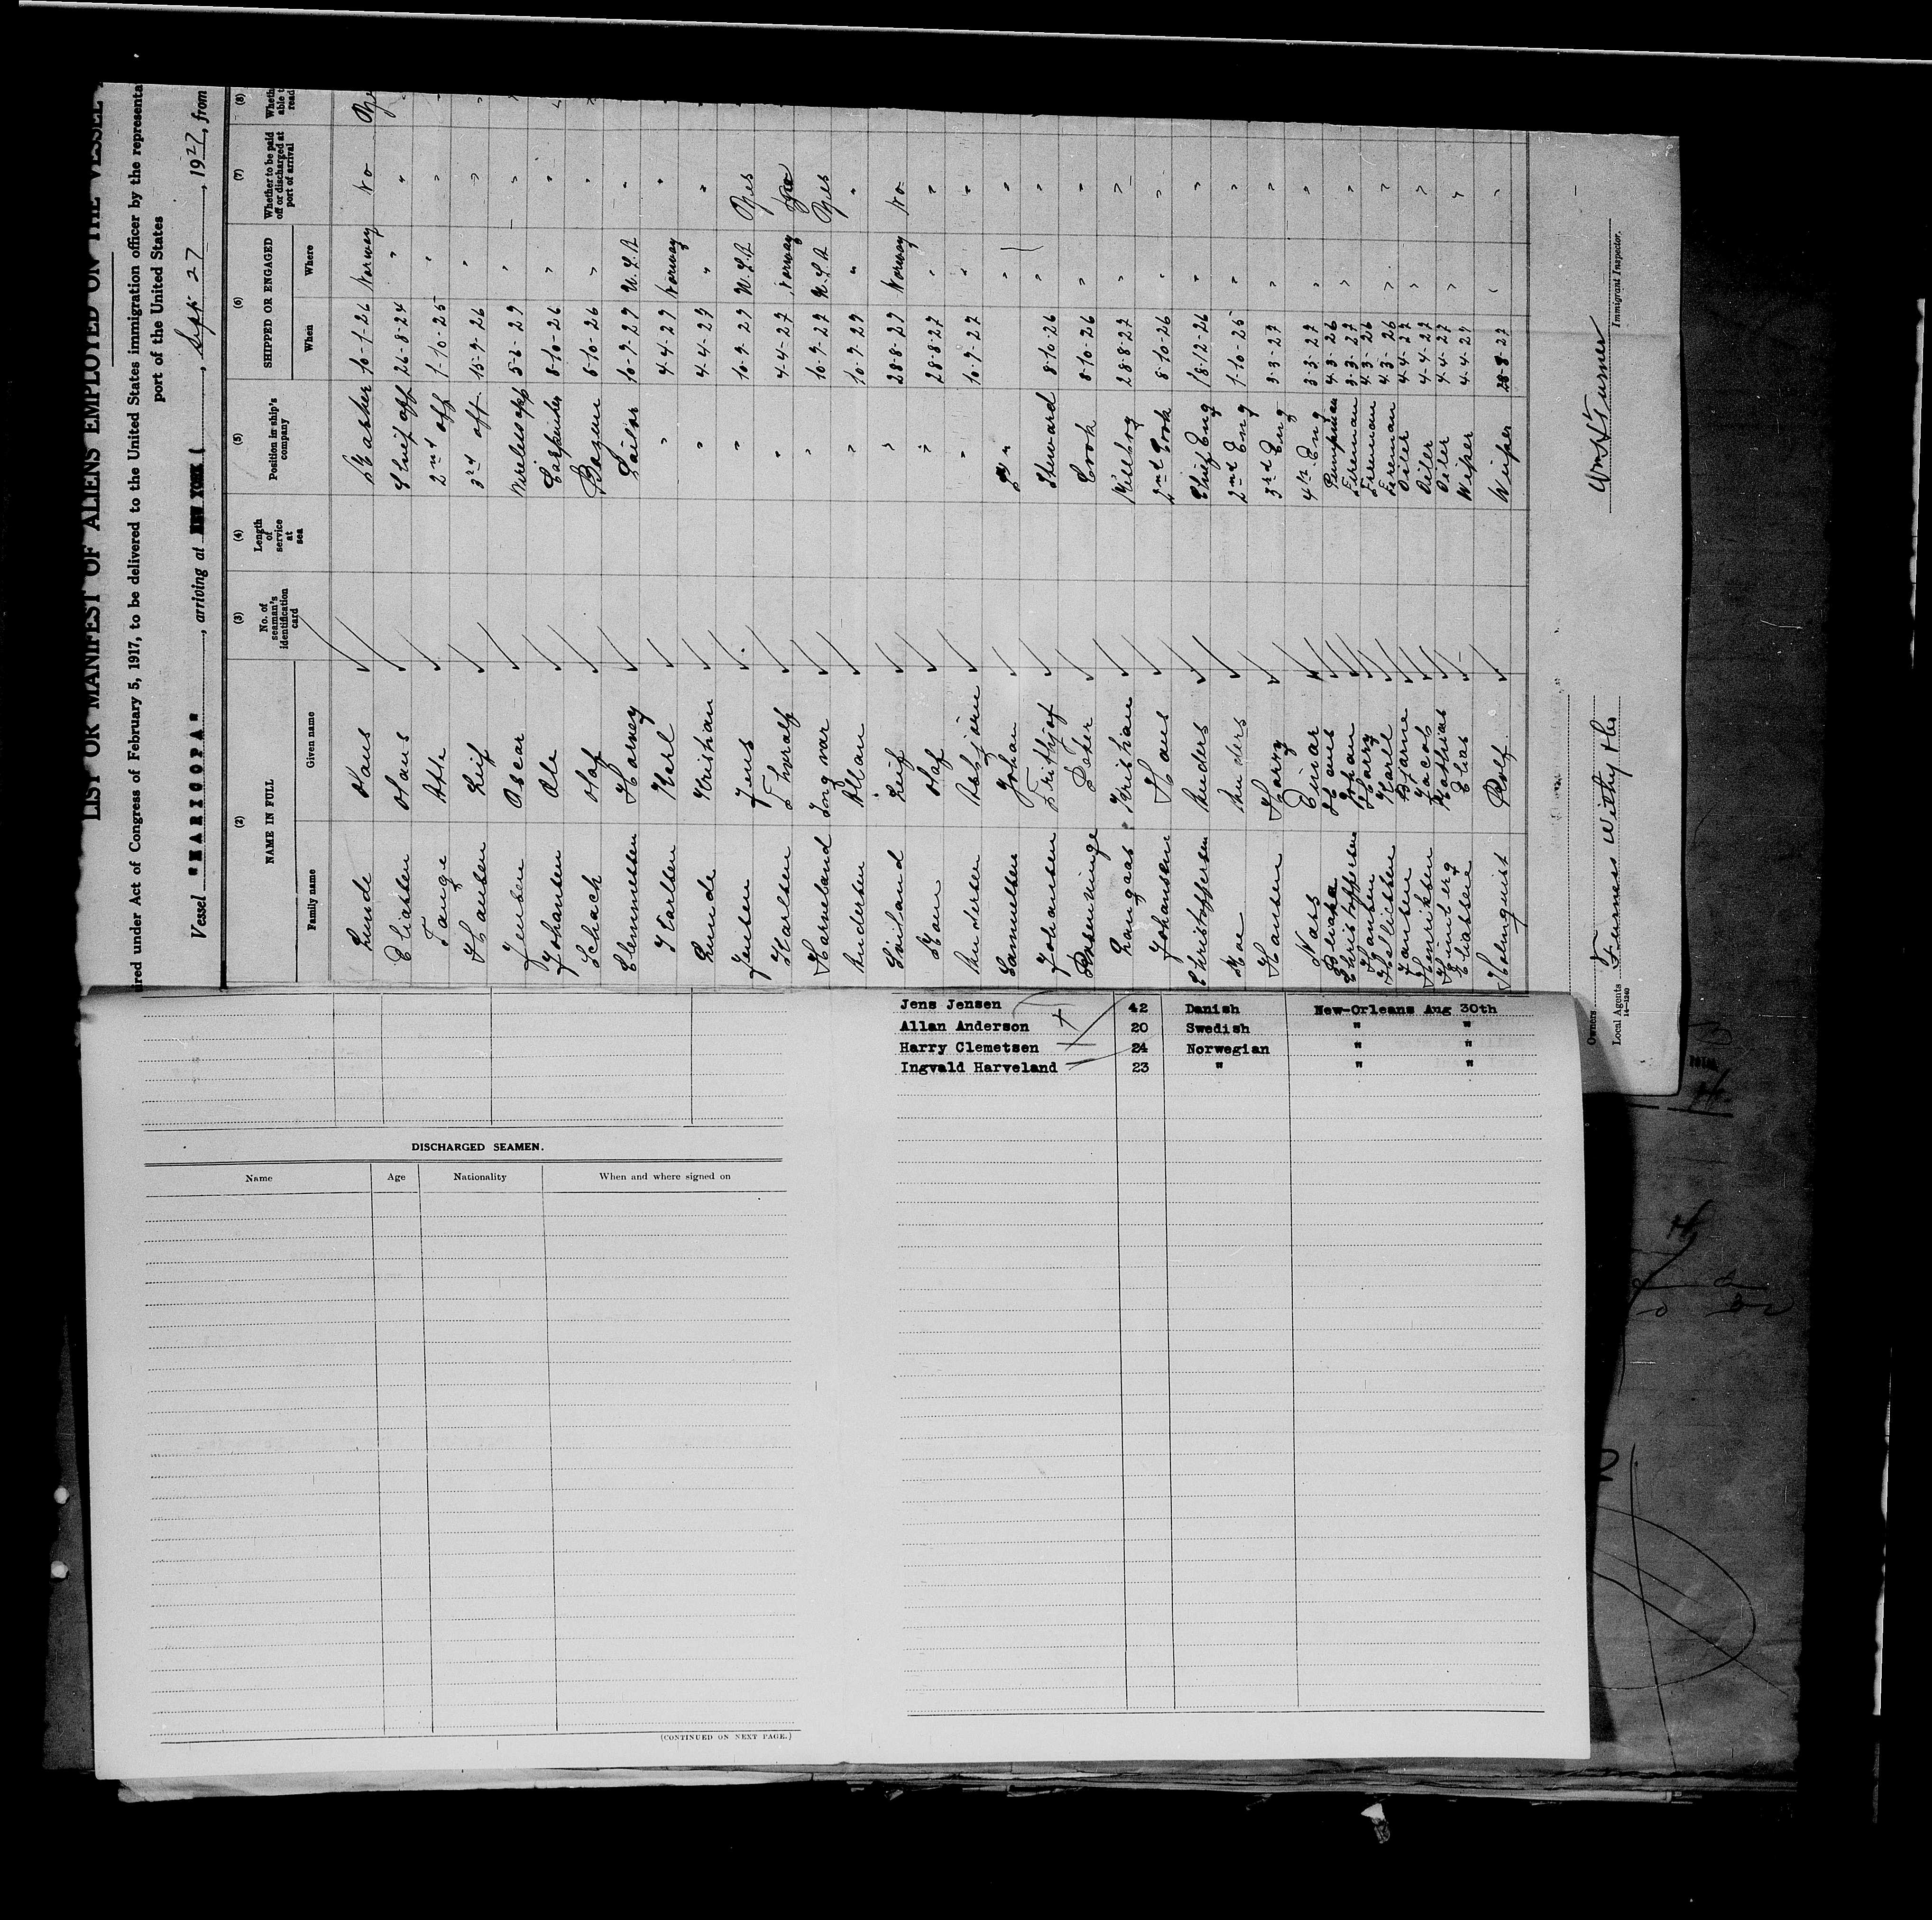 LIST OR MANIFEST OF ALIENS EMPLOYED ON THE VESSEL
ured under Act of Congress of February 5, 1917, to be delivered to the United States immigration officer by the representa
port of the United States
Vessel "MARICOPA", arriving at NEW YORK, Sept 27, 1927, from
(2) (3) (4) (5) (6) (7) (8)
NAME IN FULL No. of seaman's identification card Length of service at sea Position in ship's company SHIPPED OR ENGAGED Whether to be paid off or discharged at port of arrival Wheth able t read
Family name Given name When Where
Lunde Hans 10-1-26 Norway No
Eliassen Hans Chief off 26-8-24 "
Tange Atle 2nd off 1-10-25 " "
Hansen Leif 3rd off 15-9-26 " "
Jensen Oscar Wireless opp " "
Johansen Ole Carpenter 8-10-26 " "
Schach Olaf 8-10-26 " "
Clemmetsen Harney Sailor U.S.A "
Karlsen Karl " Norway "
Lunde Kristian " " "
Jensen Jens " U.S.A Yes
Karlsen Thoralf " 4-4-27 Norway
Harveland Ingvar " U.S.A Yes
Andersen Allan " " "
Leif " 28-8-27 Norway No
Olaf " 28-8-27 " "
Andersen Asbjörn " " "
Samuelsen Johan " "
Johansen Frithjof Steward 8-10-26 " "
Peder Cook 8-10-26 " "
Langaas Kristian Messboy 28-8-27 " "
Johansen Hans 2nd Cook 8-10-26 " "
Christoffersen Anders Chief Eng 18-12-26 " "
Moe Anders 2nd Eng 1-10-25 " "
Hansen Harry 3rd Eng 3-3-27 " "
Næss Einar 4th Eng 3-3-27 " "
Hans Pumpman 4-3-26
Christoffersen Johan Fireman 3-3-27
Hansen Harry Fireman 4-3-26
Karl Fireman 4-3-26
Jansen Bjarne Oiler 4-4-27
Henriksen Jacob Oiler 4-4-27
Mathias Oiler 4-4-27
Eliassen Elias Wiper 4-4-27
Holmquist Rolf Wiper 28-8-27
Owners
Local Agents Furness Withy &
14—1240
Immigrant Inspector.
Jens Jensen 42 Danish New-Orleans Aug 30th
Allan Anderson 20 Swedish " "
Harry Clemetsen 24 Norwegian " "
Ingvald Harveland 23 " " "
DISCHARGED SEAMEN.
Name Age Nationality When and where signed on
(CONTINUED ON NEXT PAGE.)